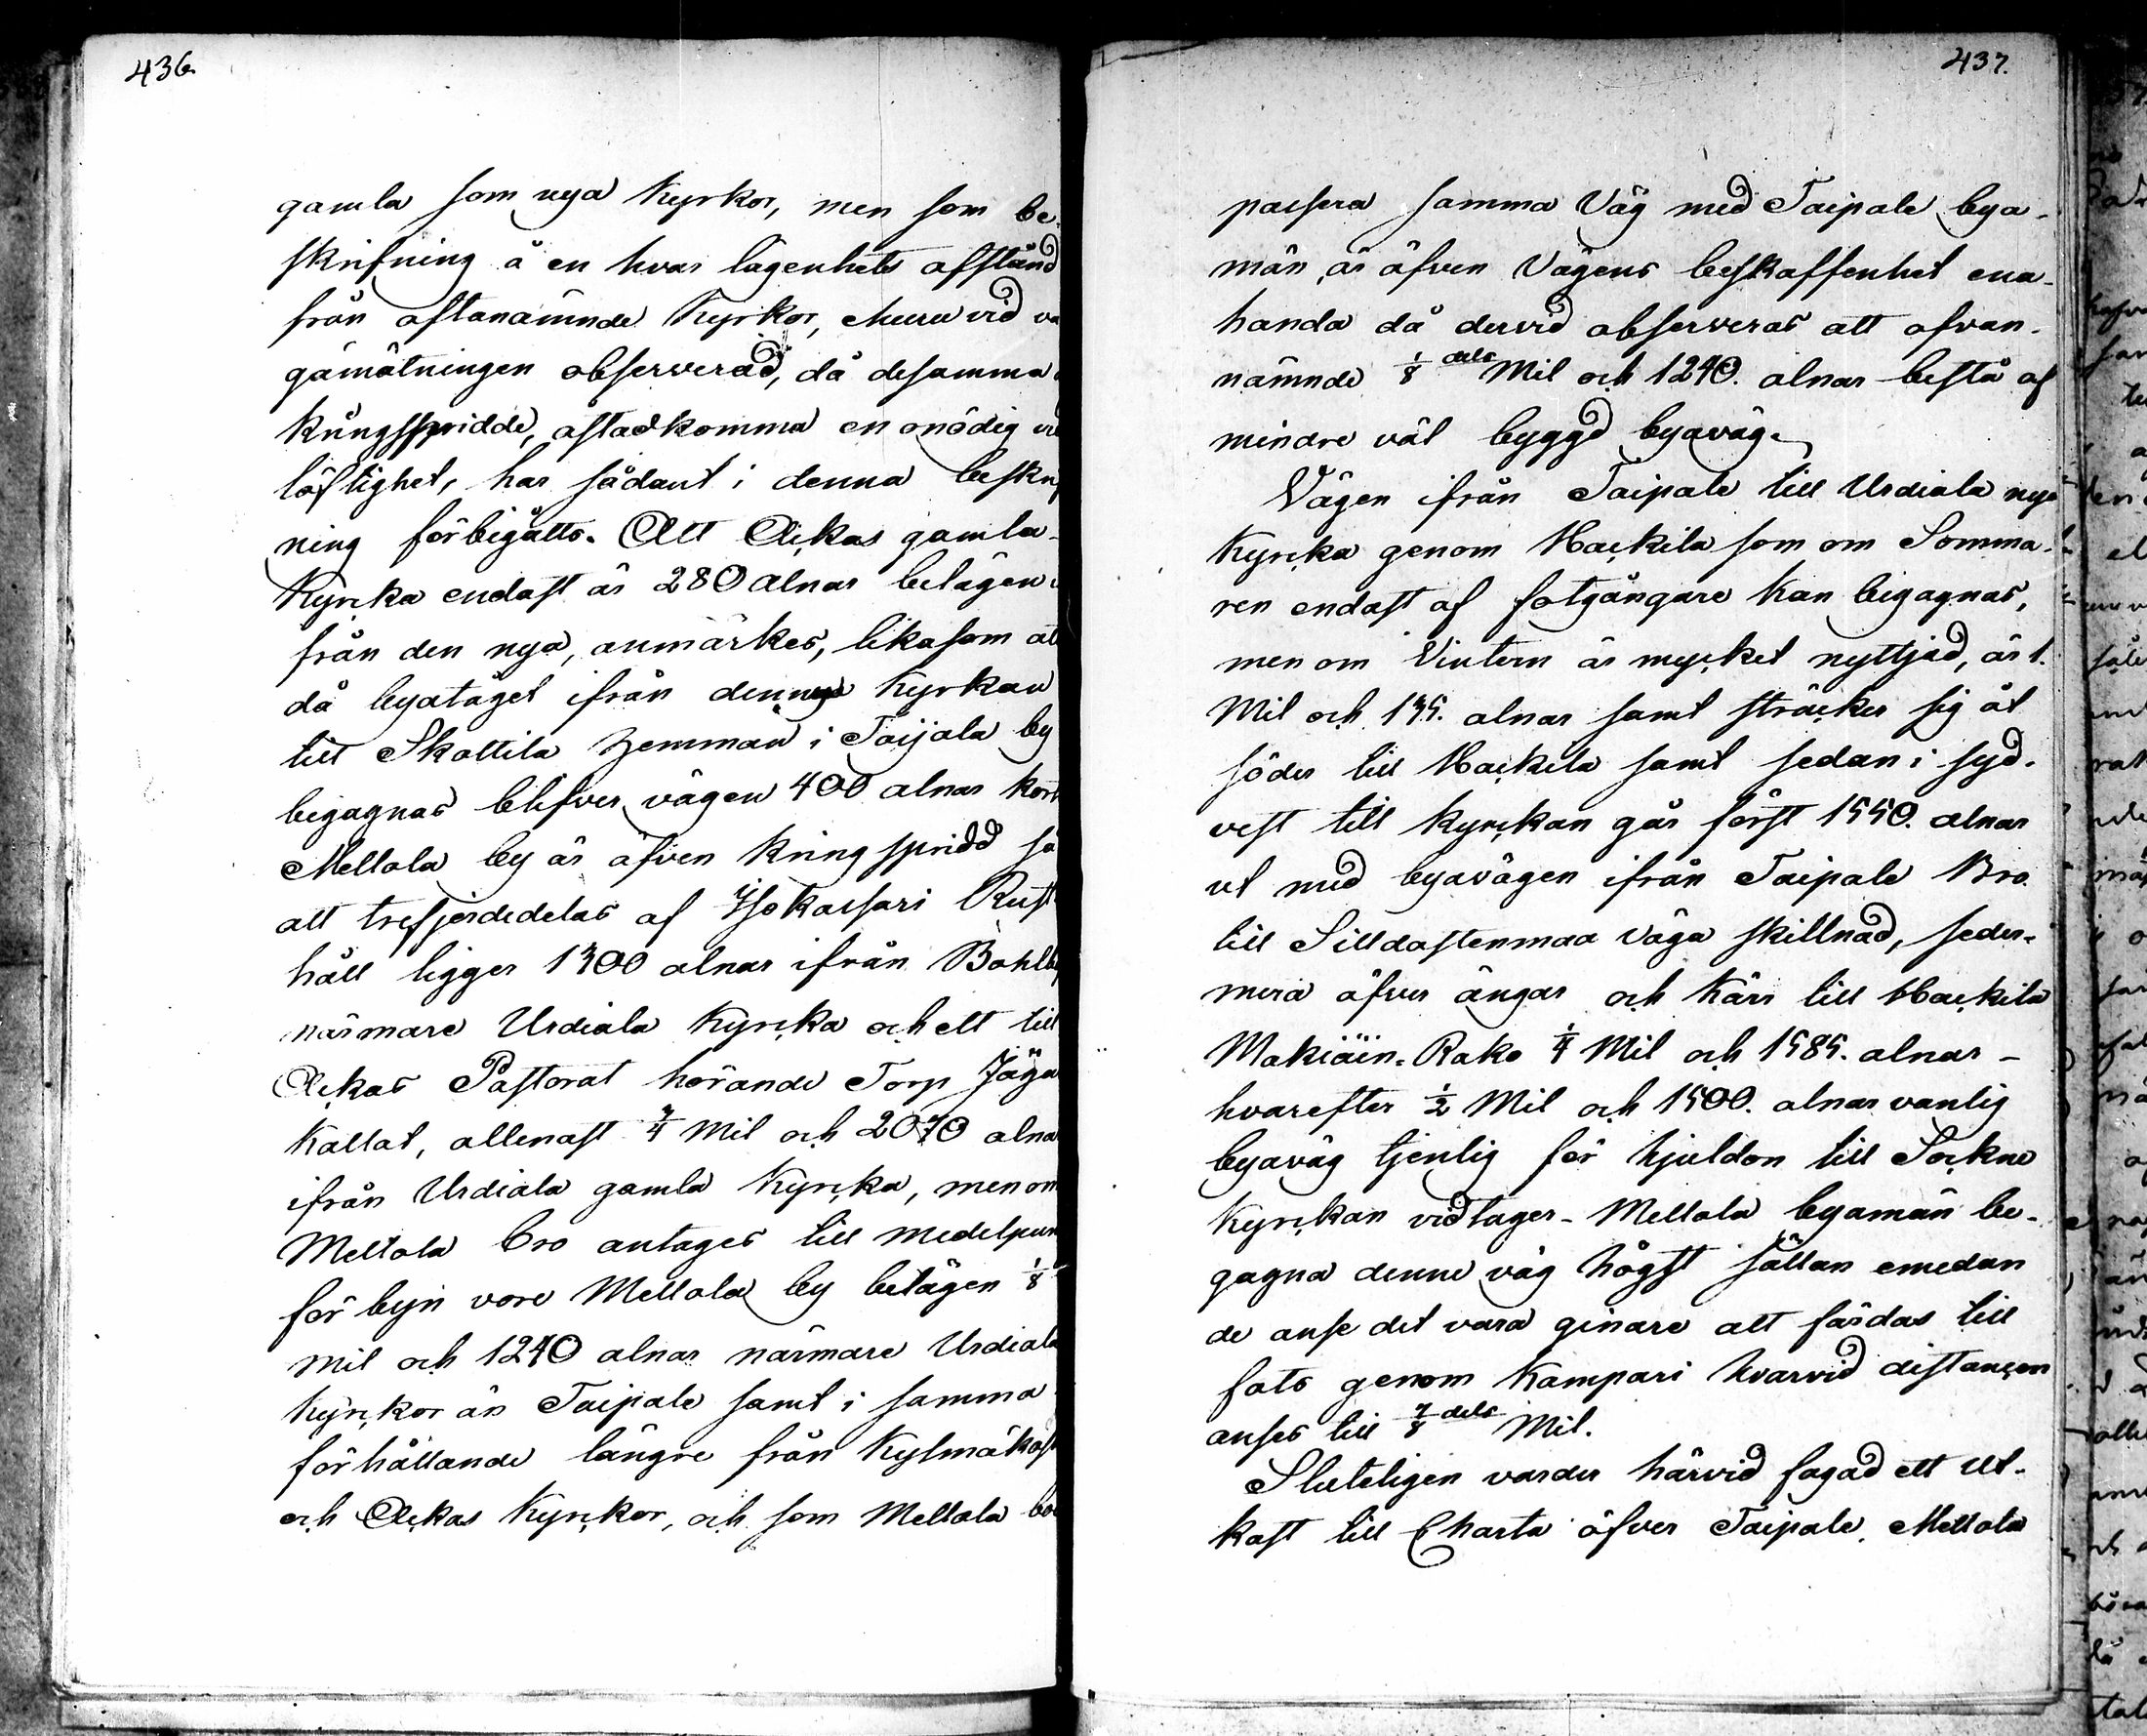 436.
gamla som nya Kyrkor, men som be-
skrifning å en hvar lägenhets afstånd
från oftanämnde Kyrkor, ehuru vid vä
gamätningen observerad, då desamma
kringspridde, åstadkomma en onödig vid
löftighet, har sådant i denna beskrif
ning förbigåtts. Att Ackas gamla
Kyrcka endast är 280 alnar belägen
från den nya, anmärkes, likasom att
då byatåget ifrån denna Kyrkan
till Skottila hemman i Toijala by
begagnas blifver vägen 400 alnar kort
Mellola by är äfven kringspridd så
att trefjerdedelas af Isokassari Rust
håll ligger 1300 alnar ifrån Bohlby
närmare Urdiala Kyrcka och ett till
Ackas Pastorat hörande Torp Jäga
Kallat, allenast 3/4 Mil och 2070 alna
ifrån Urdiala gamla Kyrcka, men om
Mellola bro antages till medelpun
för byn vore Mellola by belägen 1/8
Mil och 1240 alnar närmare Urdiala
Kyrckor än Taipale samt i samma
förhållande längre från Kylmäkos
och Ackas Kyrckor, och som Mellola bo
437.
passera samma Väg med Taipale bya-
män, är äfven Vägens beskaffenhet ena-
handa då dervid observeras att ofvan-
nämnde 1/8 dels Mil och 1240. alnar bestå af
mindre väl byggd byaväg.
Vägen ifrån Taipale till Urdiala nya
Kyrcka genom Hackila som om Somma-
ren endast af fotgångare kan begagnas,
men om Vintern är mycket nyttjad, är 1.
Mil och 135. alnar samt sträcker sig åt
söder till Hackila samt sedan i syd-
vest till kyrckan går först 1550. alnar
ut med byavägen ifrån Taipale Bro
till Silldastenmaa väga skillnad, seder-
mera öfver ängar och Kärr till Hackila
Makiäin-Rako 1/4 Mil och 1585. alnar -
hvarefter 1/2 Mil och 1500. alnar vanlig
byaväg tjenlig för hjuldon till Sockne
Kyrckan vidtager - Mellola byamän be-
gagna denne väg högst sällan emedan
de anse det vara ginare att färdas till
fots genom Kampari hvarvid distançen
anses till 7/8 dels Mil.
Sluteligen varder härvid fogad ett ut-
kast till Charta öfver Taipale, Mellola